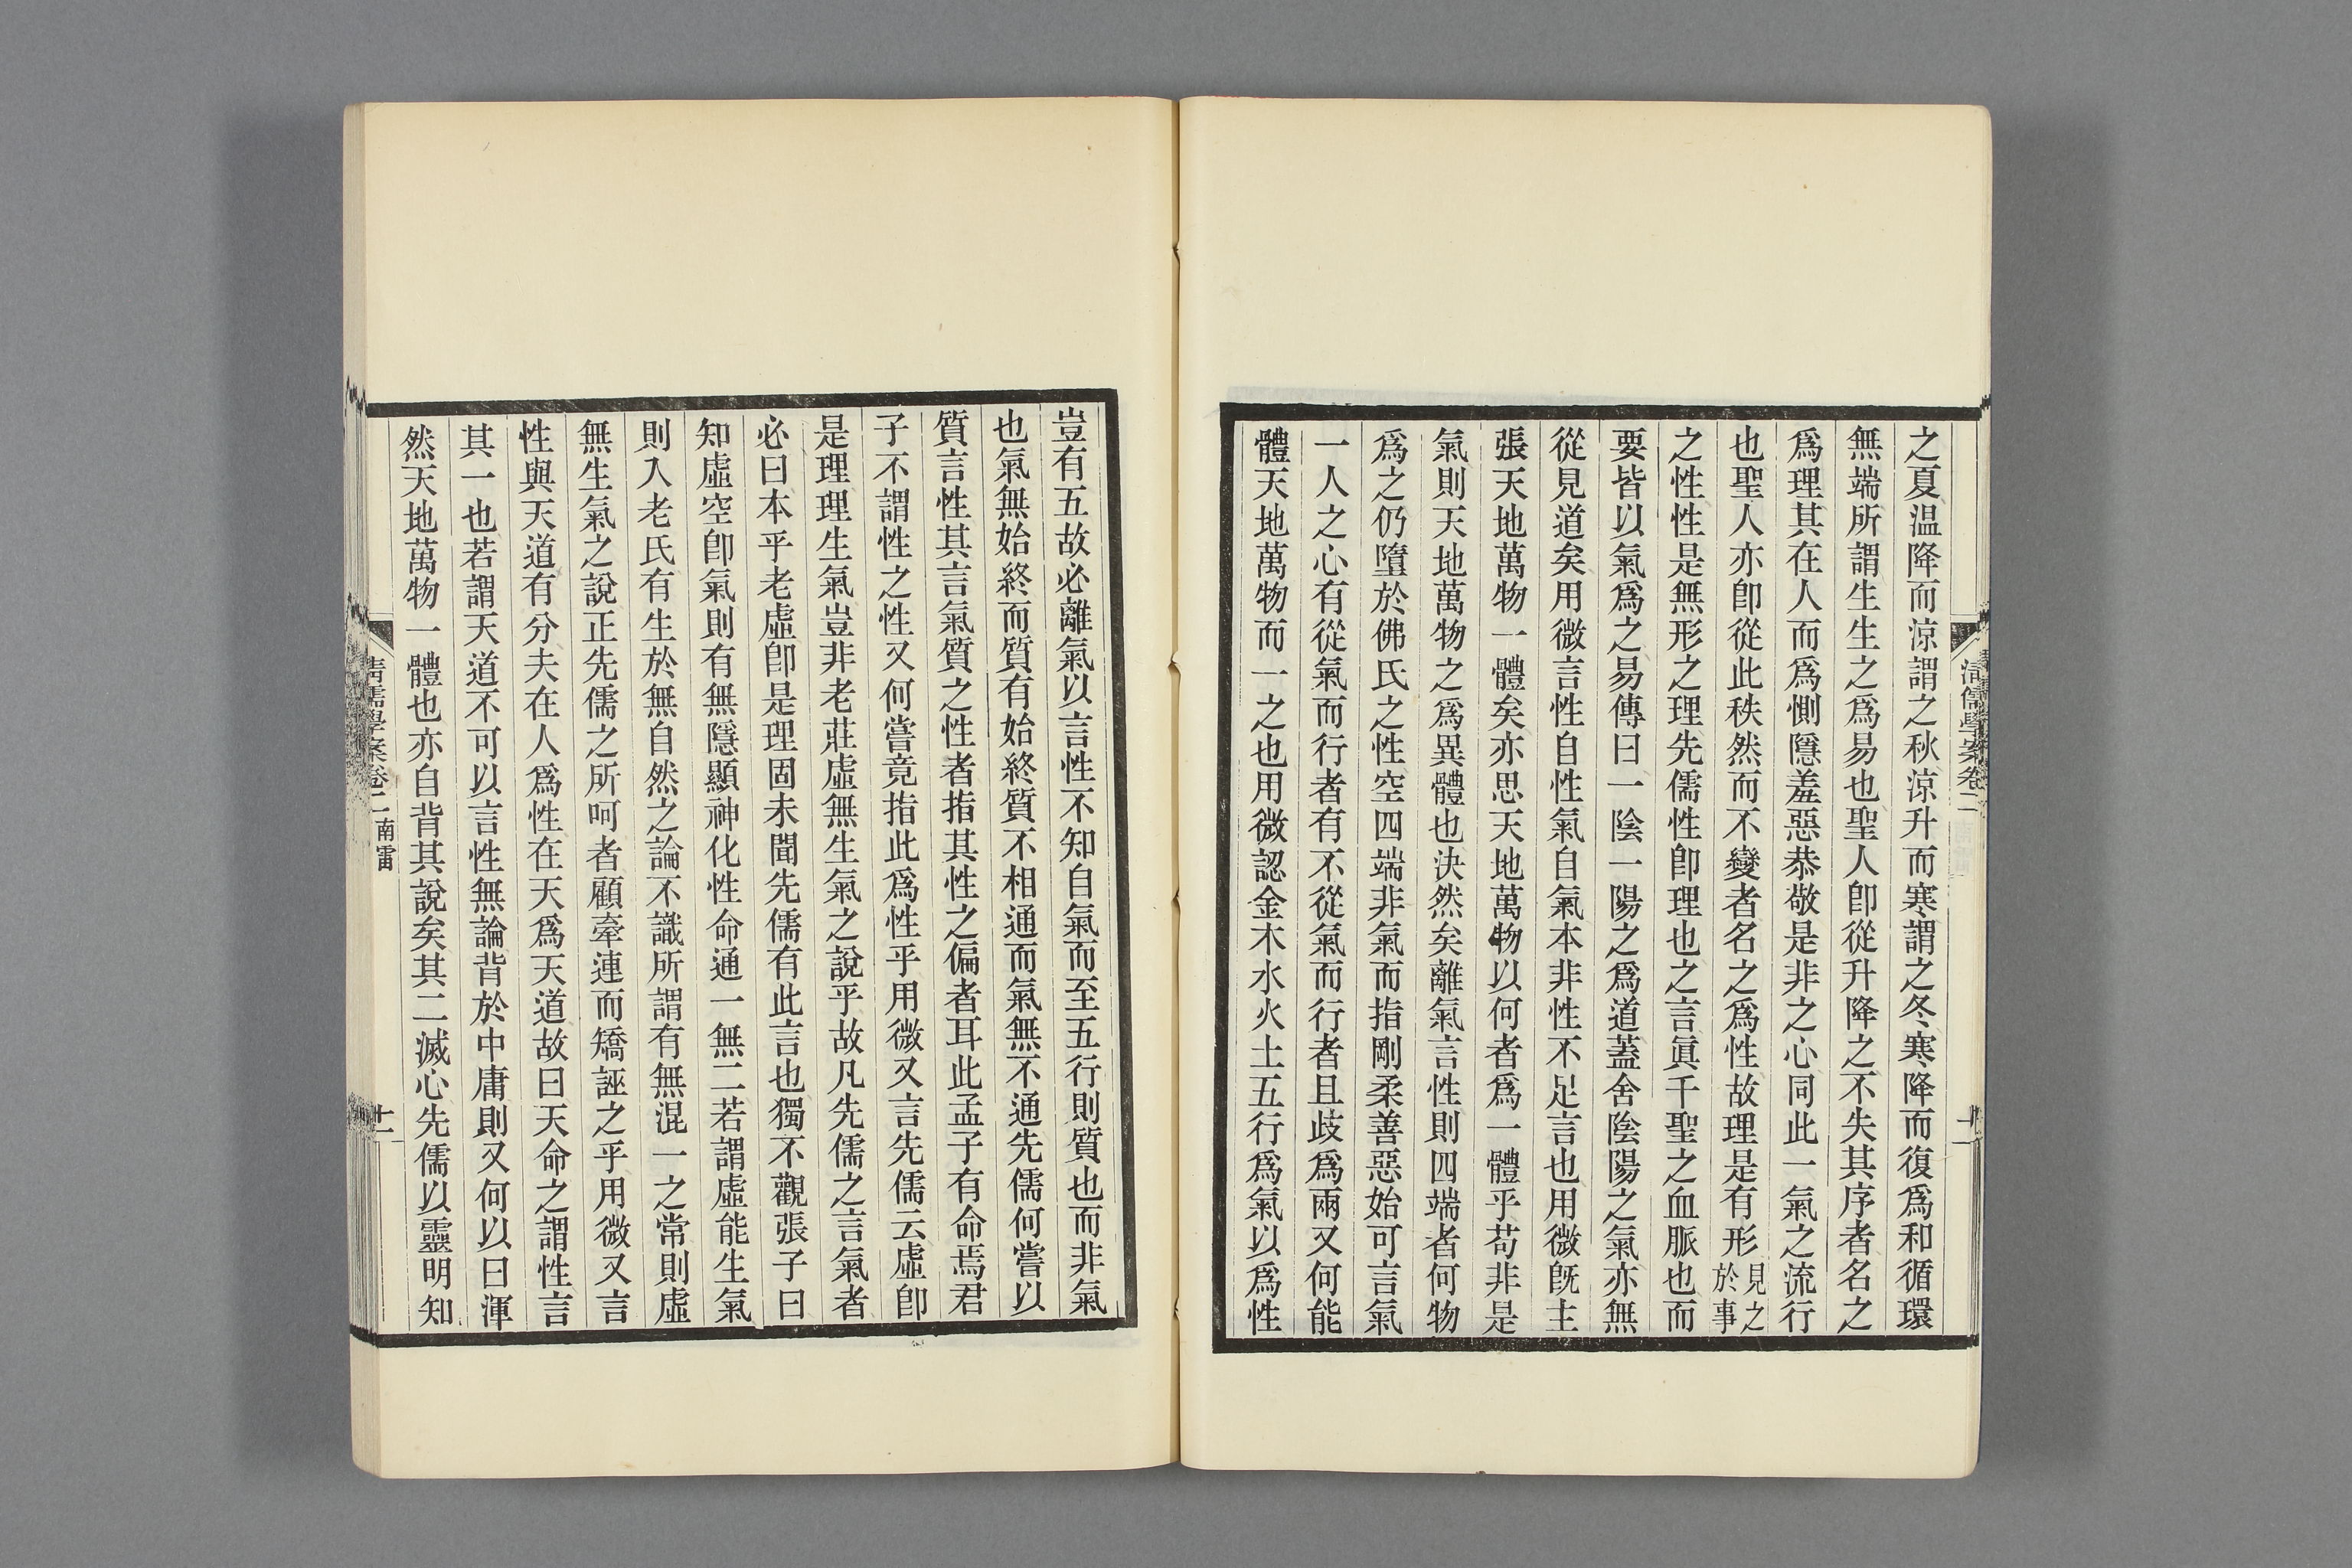 之夏温降而涼謂之秋涼升而寒謂之冬寒降而復爲和循環
無端所謂生生之爲易也聖人卽從升降之不失其序者名之
爲理其在人而爲惻隱羞惡恭敬是非之心同此一氣之流行
也聖人亦卽從此秩然而不變者名之爲性故理是有形見之於事
之性性是無形之理先儒性卽理也之言眞千聖之血脈也而
要皆以氣爲之易傳曰一陰一陽之爲道蓋舍陰陽之氣亦無
從見道矣用微言性自性氣自氣本非性不足言也用微旣主
張天地萬物一體矣亦思天地萬物以何者爲一體乎苟非是
氣則天地萬物之爲異體也決然矣離氣言性則四端者何物
爲之仍墮於佛氏之性空四端非氣而指剛柔善惡始可言氣
一人之心有從氣而行者有不從氣而行者且歧爲兩又何能
體天地萬物而一之也用微認金木水火土五行爲氣以爲性
清儒學案卷二
十一
豈有五故必離氣以言性不知自氣而至五行則質也而非氣
也氣無始終而質有始終質不相通而氣無不通先儒何嘗以
質言性其言氣質之性者指其性之偏者耳此孟子有命焉君
子不謂性之性又何嘗竟指此爲性乎用微又言先儒云虛卽
是理理生氣豈非老莊虛無生氣之說乎故凡先儒之言氣者
必曰本乎老虛卽是理固未聞先儒有此言也獨不觀張子曰
知虛空卽氣則有無隱顯神化性命通一無二若謂虛能生氣
則入老氏有生於無自然之論不識所謂有無混一之常則虛
無生氣之說正先儒之所呵者顧牽連而矯誣之乎用微又言
性與天道有分夫在人爲性在天爲天道故曰天命之謂性言
其一也若謂天道不可以言性無論背於中庸則又何以曰渾
然天地萬物一體也亦自背其說矣其二滅心先儒以靈明知
清儒學案卷二南雷
十一